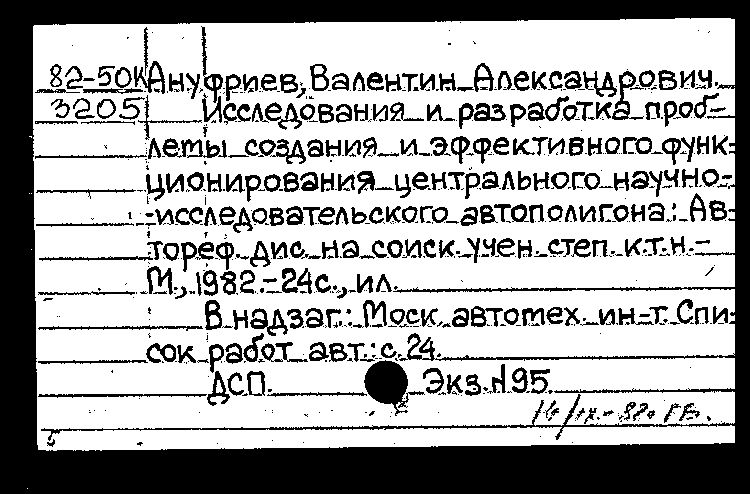 82-50К Ануфриев, Валентин Александрович.
3205 Исследования и разработка проб-
лемы создания и эффективного функ-
ционирования центрального научно-
-исследовательского автополигона: Ав-
тореф. дис. на соиск. учен. степ. к.т.н.-
М., 1982.-24с., ил.
В надзаг.: Моск. автомех. ин-т. Спи-
сок работ авт.: с. 24.
ДСП. Экз. №95
5